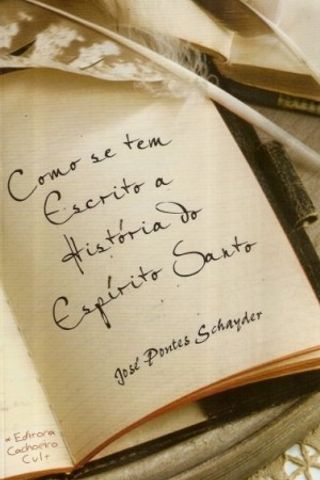 Como se tem
Escrito a
História do
Espírito Santo
José Pontes Schayder
Editora
Cachoeiro
Cult